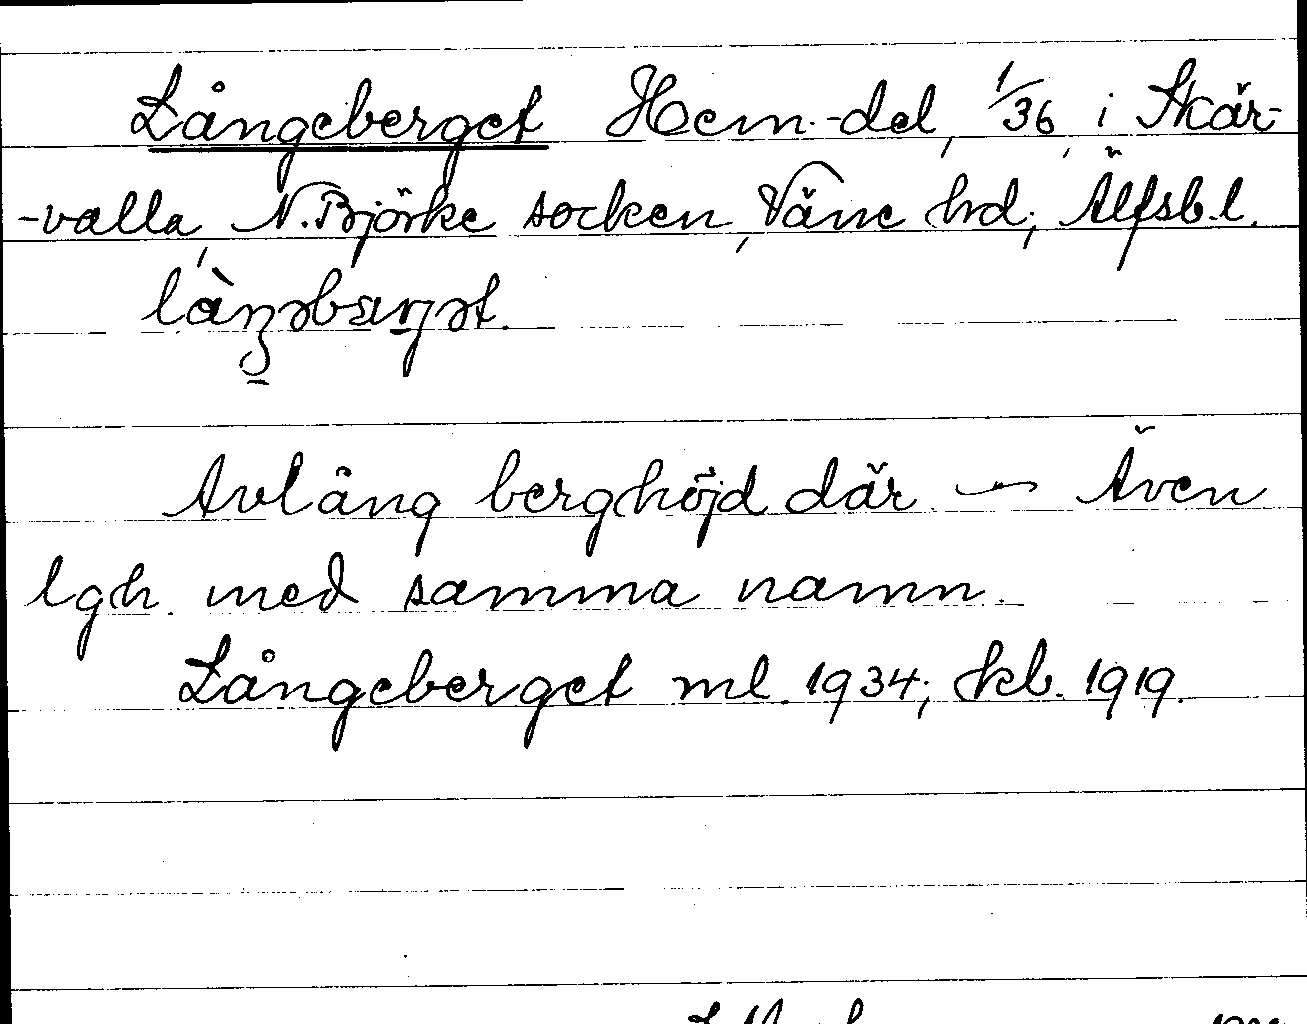 Långeberget Hem.-del, 1/36, i Skär-
-valla, N. Björke socken, Väne hd; Älfsb. l.
Avlång berghöjd där — Även
lgh. med samma namn.
Långeberget ml. 1934; kb. 1919.